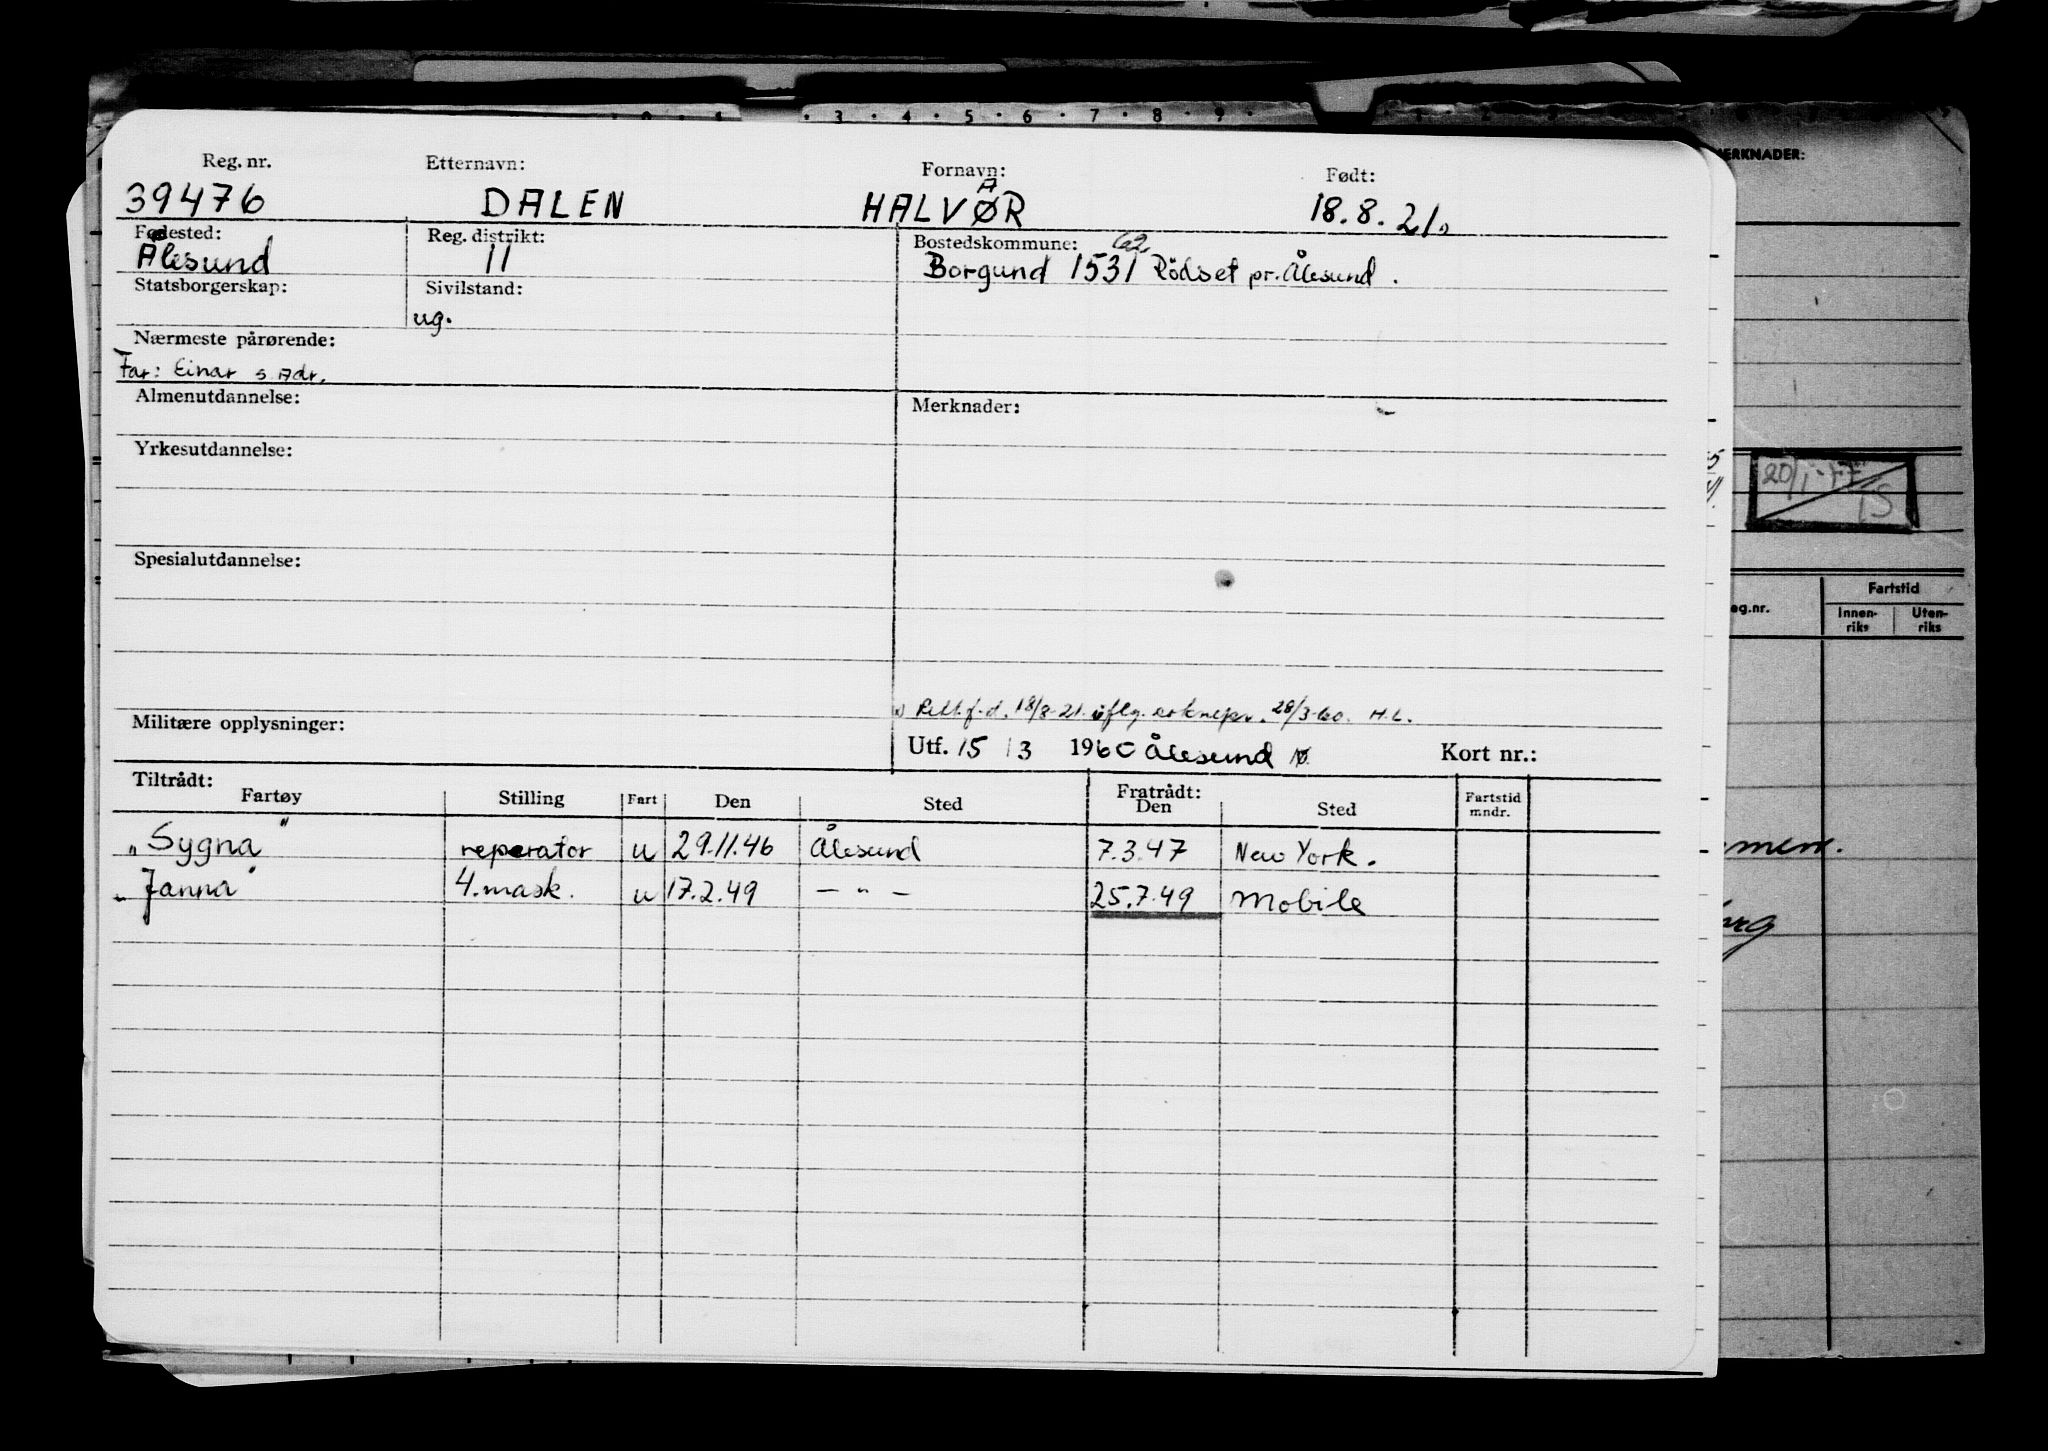 3 · 4 · 5 · 6 · 7 · 8 · 9 ·
MERKNADER:
Reg. nr. Etternavn: Fornavn: Født:
A
39476 DALEN HALVØR 18.8.21.
Fødested: Reg. distrikt: Bostedskommune: 62
Ålesund 11 Borgund 1531 Rödset pr. Ålesund.
Statsborgerskap: Sivilstand:
ug.
Nærmeste pårørende:
Far: Einar s. Adr.
Almenutdannelse: Merknader:
Yrkesutdannelse:
20/1-77
TS
Spesialutdannelse:
Fartstid
eg.nr. Innen- Uten-
riks riks
x) Rett f.d. 18/8-21. iflg. 28/3-60. H.L.
Militære opplysninger:
Utf. 15 / 3 1960 Ålesund Kort nr.:
Tiltrådt: Fratrådt:
Fartøy Stilling Fart Den Sted Den Sted Fartstid
mndr.
„Sygna" reperatør u 29.11.46 Ålesund 7.3.47 New York.
„Janna" 4. mask. u 17.2.49 — " — 25.7.49 Mobile